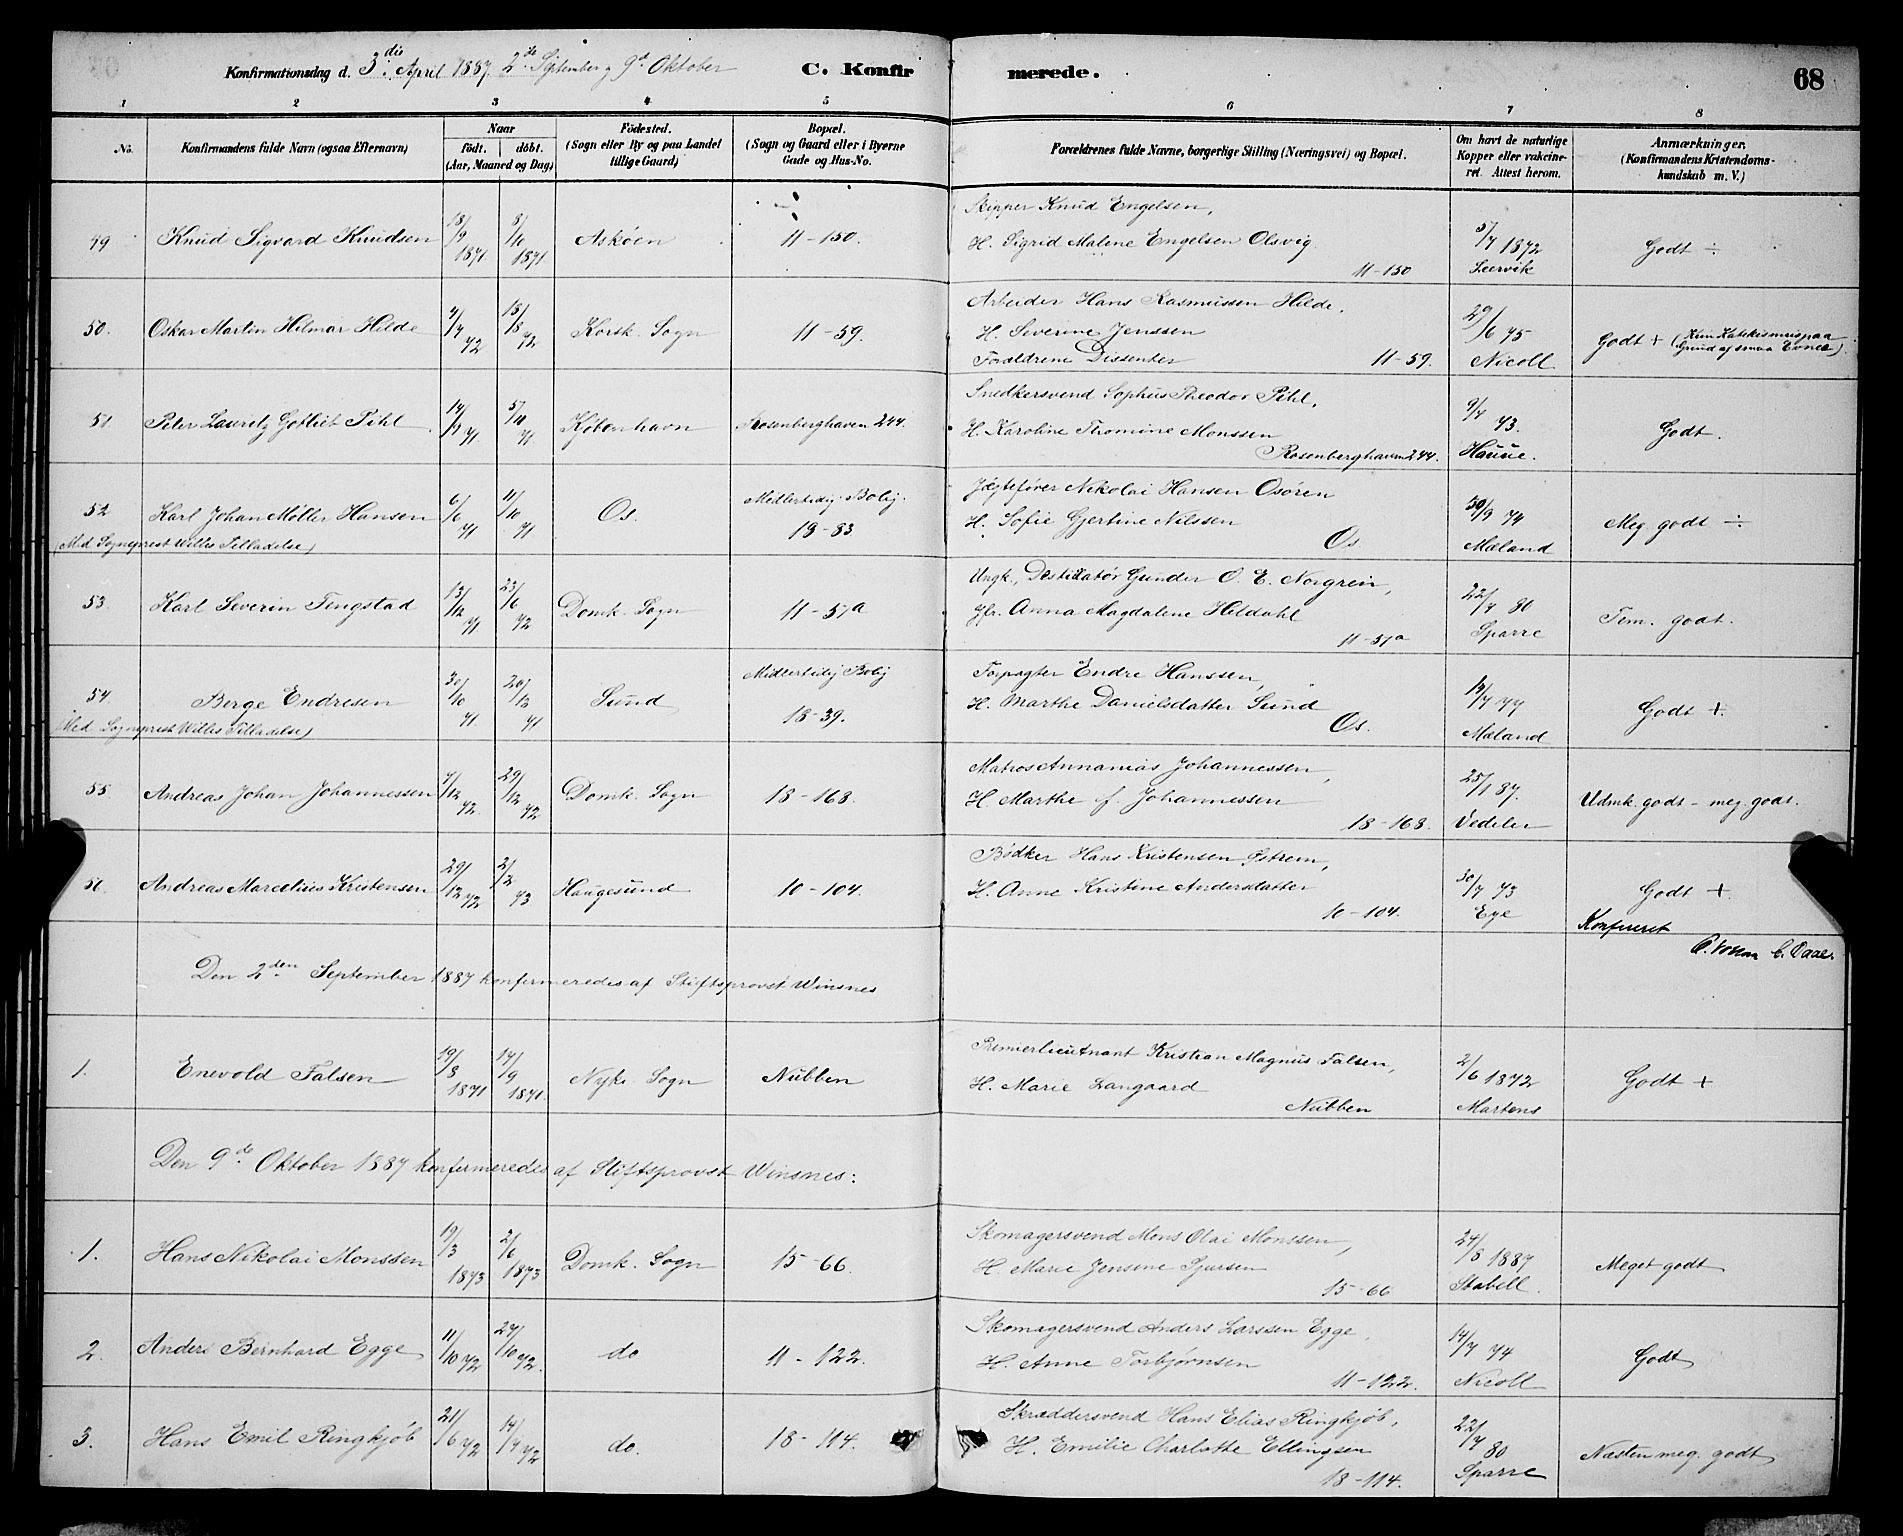 Konfirmationsdag d. 3die April 1887 2de September 9de Oktober
C. Konfirmerede.
68
1 2 3 4 5 6 7 8
No.
Konfirmandens fulde Navn (ogsaa Efternavn)
Naar
födt. döbt.
(Aar, Maaned og Dag)
Födested.
(Sogn eller By og paa Landet
tillige Gaard)
Bopæl.
(Sogn og Gaard eller i Byerne
Gade og Hus-No.
Forældrenes fulde Navne, borgerlige Stilling (Næringsvei) og Bopæl.
Om havt de naturlige
Kopper eller vakcine-
ret. Attest herom.
Anmærkninger.
(Konfirmandens Kristendoms-
kundskab m. V.)
49 Knud Sigvard Knudsen 18/9 1871 8/10 1871 Askøen 11-150.
Skipper Knud Engelsen,
H. Sigrid Malene Engelsen Olsvig
11-150
5/7 1872
Leervik
Godt ÷
50. Oskar Martin Hilmar Hilde 4/7 72 18/8 72 Korsk. Sogn 11-59.
Arbeider Hans Rasmussen Hilde,
H. Severine Jenssen
Forældrene Dissenter 11-59.
29/6 75
Nicoll
Godt + (Kun Katekismus paa
Grund af smaa Evner)
51 Peter Lauritz Gotlieb Pihl 14/9 71. 5/11 71 Kjøbenhavn Rosenberghaven 244.
Snedkersvend Sophus Theodor Pihl,
H. Karoline Thomine Monssen
Rosenberghaven 244.
9/7 73.
Hauue.
Godt.
52 Karl Johan Møller Hansen 6/6 71 11/10 71 Os. Midlertidig Bolig.
18-83.
(Med Sogneprest Willes Tilladelse)
Jægtefører Nikolai Hansen Osören
H. Sofie Gjertine Nilssen
Os.
30/9 74
Mæland
Meg. godt ÷
53. Karl Severin Tengstad 13/12 71. 23/6 72 Domk. Sogn 11-51a
Ungk., Destilatør Gunder O. E. Norgrein,
Jfr. Anna Magdalene Hildahl
11-51a
22/7 80
Sparre
Tem. godt.
54. Berge Endresen 30/10 71 26/12 71 Sund Midlertidig Bolig
18-39.
(Med Sogneprest Willes Tilladelse)
Forpagter Endre Hanssen,
H. Marthe Danielsdatter Sund
Os.
14/7 77
Mæland
Godt +.
55 Andreas Johan Johannessen 7/12 72. 29/12 72 Domk. Sogn 18-168.
Matros Annanias Johannessen,
H. Marthe f. Johannessen
18-168.
25/1 87.
Vedeler
Udmk. godt - meg. godt.
56. Andreas Marcelius Kristensen 29/12 72 2/2 73. Haugesund 10-104.
Bødker Hans Kristensen Østrem,
H. Anne Kristine Andersdatter
10-104.
30/7 73
Eye
Godt +.
Konfereret
Den 2den September 1887 konfirmeredes af Stiftsprovst Winsnes
1. Enevold Falsen 19/8 1871 14/9 1871. Nyk. Sogn Nubben
Premierlieutnant Kristian Magnus Falsen,
H. Marie Langaard
Nubben
2/6 1872
Martens
Godt +
Den 9de Oktober 1887 konfirmeredes af Stiftsprovst Winsnes:
1. Hans Nikolai Monssen 19/3 1873 2/6 1873 Domk. Sogn 15-66.
Skomagersvend Mons Olai Monssen,
H. Marie Jensine Sjursen
15-66
24/8 1887
Stabell.
Meget godt
2. Anders Bernhard Egge 11/10 72 27/10 72. do 11-122.
Skomagersvend Anders Larssen Egge,
H. Anne Torbjørnsen
11-122.
14/7 74
Nicoll
Godt
3. Hans Emil Ringkjøb 21/6 72 14/7 72 do. 18-114.
Skræddersvend Hans Elias Ringkjøb,
H. Emilie Charlotte Ellingsen
18-114.
22/7 80
Sparre
Næsten meg. godt